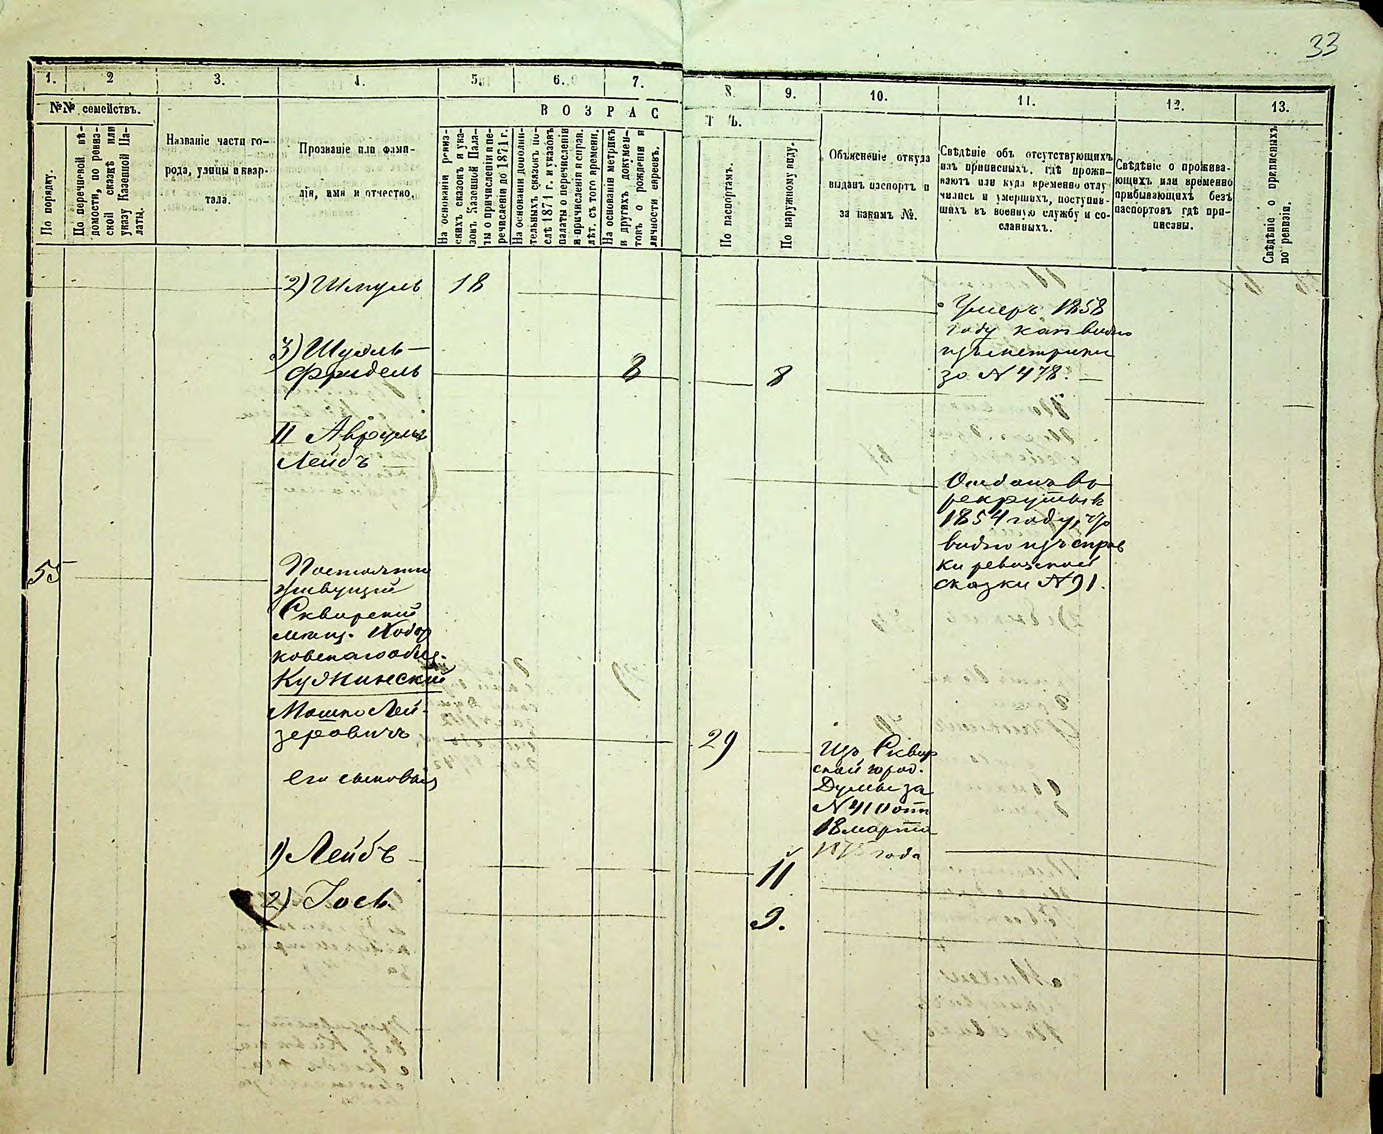 33
1. 2 3. 4. 5. 6. 7. 8. 9. 10. 11. 12. 13.
№№ семействъ.
ВОЗРАСТЪ.
По порядку.
По перечневой вѣ-
домости, по ревиз-
ской сказкѣ или
указу Казенной Па-
латы.
Названіе части го-
рода, улицы и квар-
тала.
Прозваніе или фами-
лія, имя и отчество.
На основаніи ревиз-
скихъ сказокъ и ука-
зовъ Казенной Пала-
ты о причисленіи и пе-
речисленіи до 1871 г.
На основаніи дополни-
тельныхъ сказокъ по-
слѣ 1871 г. и указовъ
палаты о перечисленіи
и причисленіи и справ.
лѣт. съ того времени.
На основаніи метрикъ
и другихъ докумен-
товъ о рожденіи и
личности евреевъ.
По паспортамъ.
По наружному виду.
Объясненіе откуда
выданъ паспортъ и
за какимъ №.
Свѣдѣніе объ отсутствующихъ
изъ приписныхъ, гдѣ прожи-
ваютъ или куда временно отлу
чились и умершихъ, поступив-
шихъ въ военную службу и со-
сланныхъ.
Свѣдѣніе о прожива-
ющихъ или временно
прибывающихъ безъ
паспортовъ гдѣ при-
писаны.
Свѣдѣніе о приписныхъ
по ревизіи.
2) Шмуль 18
Умеръ 1858
году как видно
изъ метрики
за № 478.
3) Шуоль-
Фридель 8 8
II Аврумъ
Лейбъ
Отданъ въ
рекруты в
1854 году, что
видно изъ справ
ки ревизской
сказки № 91.
55
Постоянно
живущій
Сквирскій
мѣщ. Ходор
ковскаго общ.
Кужинскій
Мошко Лей-
зеровичъ 29
Изъ Сквир
ской город.
Думы за
№ 410 отъ
18 марта
1875 года
Его сыновья
1) Лейбъ 11
2) Іось 9.